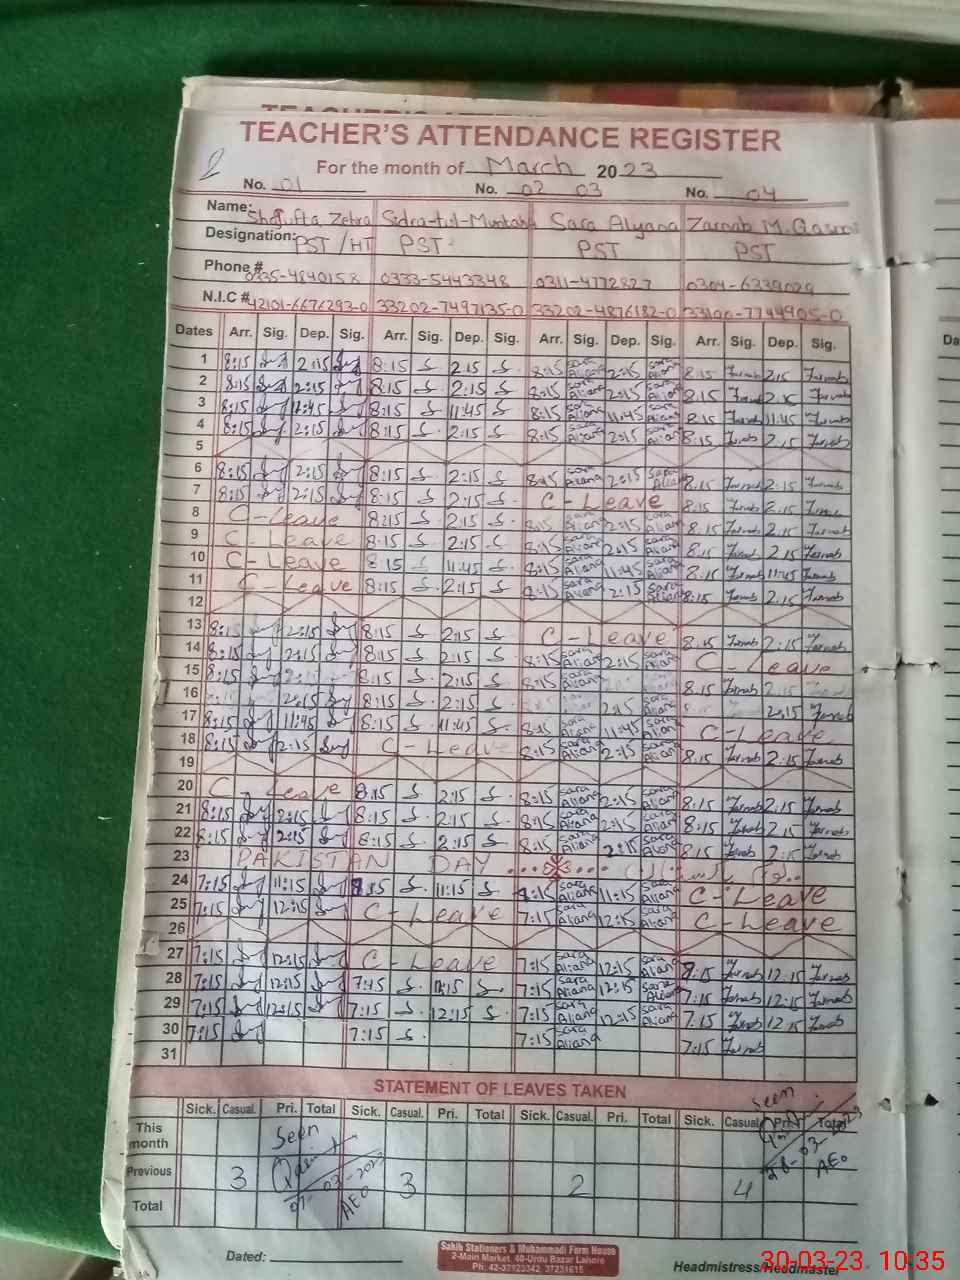 TEACHER'S ATTENDANCE REGISTER
2
For the month of March 2023
No. 01 No. 02 03 No. 04
Name: Shgufta Zehra Sidra-tul-Muntaha Sara Alyana Zarnab M.
Designation: PST/HT PST PST PST
Phone # 0335-4840158 0333-5443348 0311-4772827 0304-6339029
N.I.C # 42101-6676293-0 33202-7497135-0 33202-4876182-0 33100-7744905-0
Dates Arr. Sig. Dep. Sig. Arr. Sig. Dep. Sig. Arr. Sig. Dep. Sig. Arr. Sig. Dep. Sig.
1 8:15 2:15 8:15 S 2:15 S 8:15 Sara Aliana 2:15 Sara Aliana 8:15 Zarnab 2:15 Zarnab
2 8:15 2:15 8:15 S 2:15 S 8:15 Sara Aliana 2:15 Sara Aliana 8:15 Zarnab 2:15 Zarnab
3 8:15 11:45 8:15 S 11:45 S 8:15 Sara Aliana 11:45 Sara Aliana 8:15 Zarnab 11:45 Zarnab
4 8:15 2:15 8:15 S 2:15 S 8:15 Sara Aliana 2:15 Sara Aliana 8:15 Zarnab 2:15 Zarnab
5
6 8:15 2:15 8:15 S 2:15 S 8:15 Sara Aliana 2:15 Sara Aliana 8:15 Zarnab 2:15 Zarnab
7 8:15 2:15 8:15 S 2:15 S C-Leave 8:15 Zarnab 2:15 Zarnab
8 C-Leave 8:15 S 2:15 S 8:15 Sara Aliana 2:15 Sara Aliana 8:15 Zarnab 2:15 Zarnab
9 C-Leave 8:15 S 2:15 S 8:15 Sara Aliana 2:15 Sara Aliana 8:15 Zarnab 2:15 Zarnab
10 C-Leave 8:15 S 11:45 S 8:15 Sara Aliana 11:45 Sara Aliana 8:15 Zarnab 11:45 Zarnab
11 C-Leave 8:15 S 2:15 S 8:15 Sara Aliana 2:15 Sara Aliana 8:15 Zarnab 2:15 Zarnab
12
13 8:15 2:15 8:15 S 2:15 S C-Leave 8:15 Zarnab 2:15 Zarnab
14 8:15 2:15 8:15 S 2:15 S 8:15 Sara Aliana 2:15 Sara Aliana C-Leave
15 8:15 8:15 S 2:15 S 8:15 Sara Aliana 8:15 Zarnab 2:15
16 2:15 8:15 S 2:15 S 2:15 Sara Aliana 2:15 Zarnab
17 8:15 11:45 8:15 S 11:45 S 8:15 Sara Aliana 11:45 Sara Aliana C-Leave
18 8:15 2:15 C-Leave 8:15 Sara Aliana 2:15 Sara Aliana 8:15 Zarnab 2:15 Zarnab
19
20 C-Leave 8:15 S 2:15 S 8:15 Sara Aliana 2:15 Sara Aliana 8:15 Zarnab 2:15 Zarnab
21 8:15 2:15 8:15 S 2:15 S 8:15 Sara Aliana 2:15 Sara Aliana 8:15 Zarnab 2:15 Zarnab
22 8:15 2:15 8:15 S 2:15 S 8:15 Sara Aliana 2:15 Sara Aliana 8:15 Zarnab 2:15 Zarnab
23 PAKISTAN DAY
24 7:15 11:15 8:15 S 11:15 S 8:15 Sara Aliana 11:15 Sara Aliana C-Leave
25 7:15 12:15 C-Leave 7:15 Sara Aliana 12:15 Sara Aliana C-Leave
26
27 7:15 12:15 C-Leave 7:15 Sara Aliana 12:15 Sara Aliana 8:15 Zarnab 12:15 Zarnab
28 7:15 12:15 7:15 S S 7:15 Sara Aliana 12:15 Sara Aliana 7:15 Zarnab 12:15 Zarnab
29 7:15 12:15 7:15 S 12:15 S 7:15 Sara Aliana 12:15 Sara Aliana 7:15 Zarnab 12:15 Zarnab
30 7:15 7:15 S 7:15 Sara Aliana 7:15 Zarnab
31
STATEMENT OF LEAVES TAKEN
Sick. Casual. Pri. Total Sick. Casual. Pri. Total Sick. Casual. Pri. Total Sick. Casual Pri. Total
This month Seen Seen
Previous 3 3 2 4
07-03-2023 AEO 28-03-2023 AEO
Total
Dated:
Sahih Stationers & Muhammadi Form House
2-Main Market, 40-Urdu Bazar Lahore
Ph: 42-37123342, 37231615
Headmistress/Headmaster
30-03-23 10:35
Da